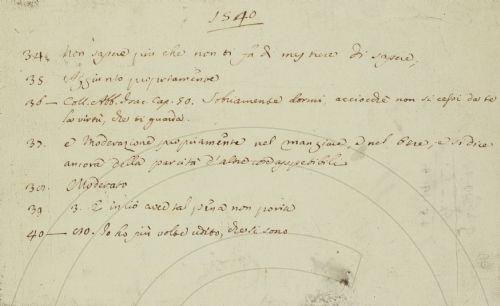 1540
34. Non sapere più che non ti fa di mestiere di sapere,
35 Aggiunto propriamente
36 — Coll. Abb. Isac. Cap. 50. Sobriamente dormi, acciocchè non si cessi da te
la virtù, che ti guarda.
37. è Moderazione propriamente nel mangiare, e nel bere, e si dice
ancora della parcità d'altre cose appetibili
38. Moderato
39 3. E
tal pena non
40 — Io ho più volte udito, che si sono